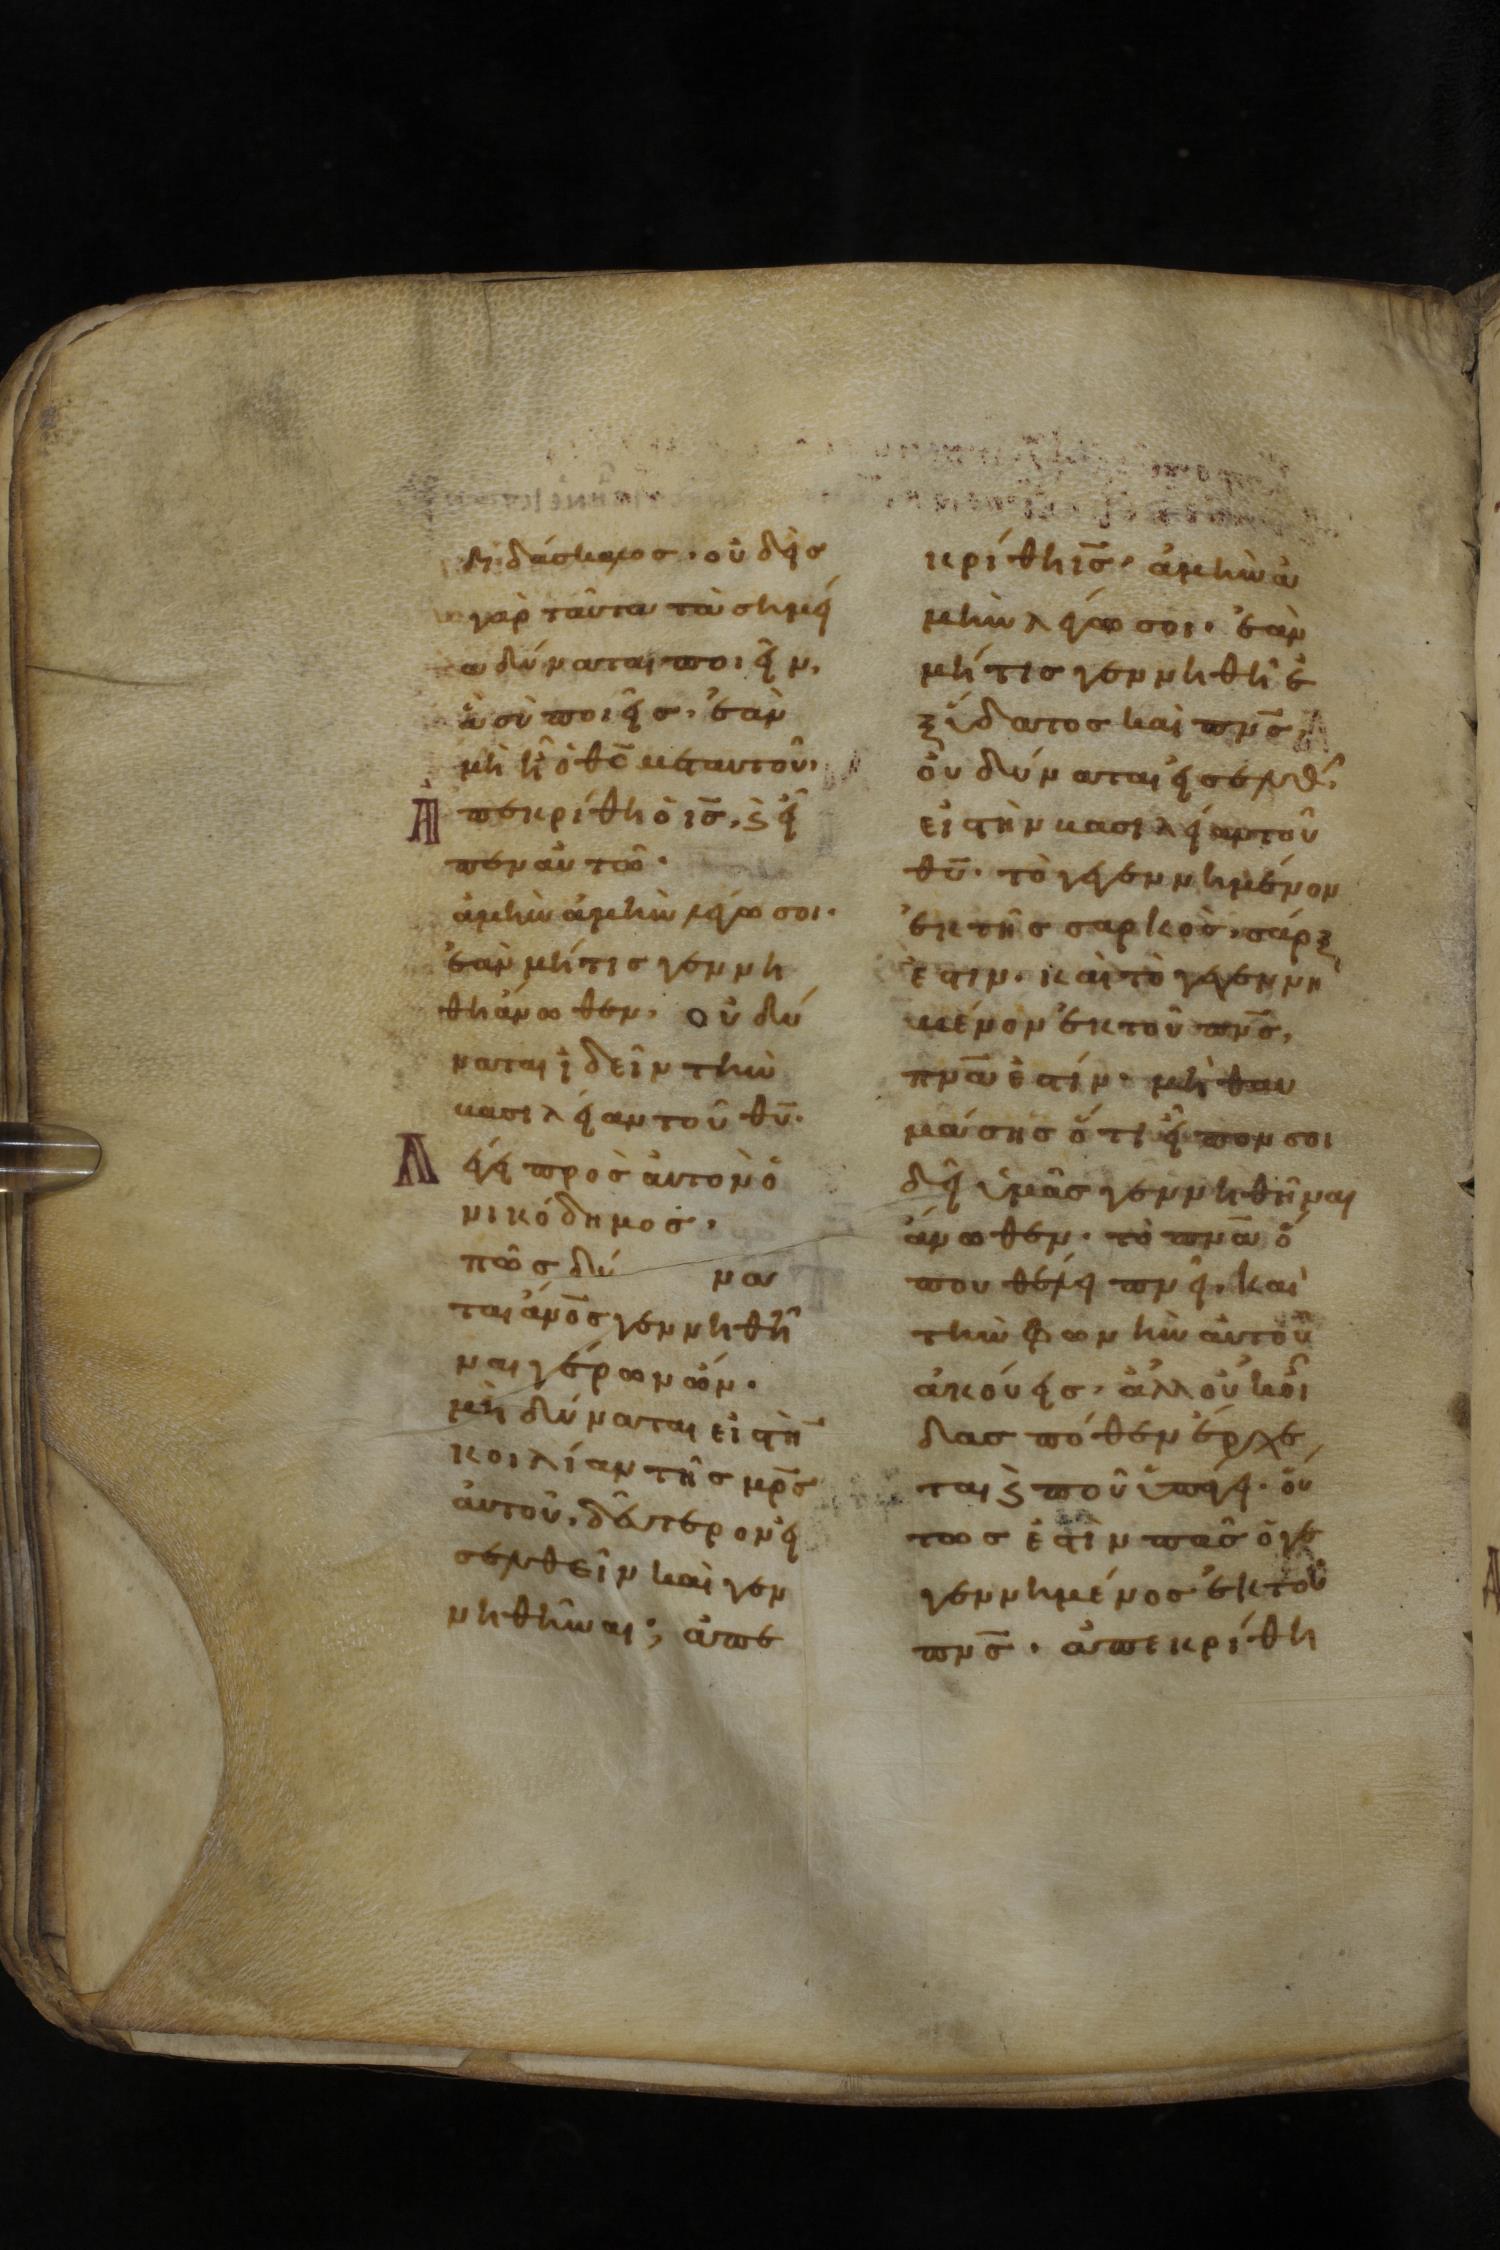 διδάσκαλος· οὐδεὶς
γὰρ ταῦτα τὰ σημεῖ
α δύναται ποιεῖν,
ἃ σὺ ποιεῖς· ἐὰν
μὴ ἦ ὁ θς̄ μεταυτοῦ·
Ἀπεκρίθη ὁ ις̄, ϗ εἶ
πεν αὐτῶ·
ἀμὴν ἀμὴν λέγω σοι·
ἐὰν μή τις γεννη
θῆ ἄνωθεν· οὐ δύ
ναται ἰδεῖν τὴν
βασιλείαν τοῦ θῡ·
Λέγει πρὸς ἀυτὸν ὁ
νικόδημος·
πῶς δύνα
ται ἄνος̄ γεννηθῆ
ναι γέρων ὤν·
μὴ δύναται εἰς τὴν̄
κοιλίαν τῆς μρ̄ς
ἀυτοῦ, δεύτερον εἰ
σελθεῖν καὶ γεν
νηθῆναι; ἀπε
κρίθη ις̄· ἀμὴν ἀ
μὴν λέγω σοι· ἐὰν
μή τις γεννηθῆ ἐ
ξ ὕδατος καὶ πνς̄,
ὀυ δύναται εἰσελθεῖ
εἰς τὴν βασιλείαν τοῦ
θῡ· τὸ γεγεννημένον
ἐκ τῆς σαρκὸς, σάρξ
ἐστιν· καὶ τὸ γεγεννη
μένον ἐκ τοῦ πνς̄,
πνᾱ ἐστίν· μὴ θαυ
μάσης ὅτι εἶπον σοι
δεῖ ὑμᾶς γεννηθῆναι
ἄνωθεν· τὸ πνᾱ ὅ
που θέλει πνεῖ, καὶ
τὴν φωνὴν ἀυτοῦ
ἀκούεις, ἀλλ οὐκ οἶ
δας πόθεν ἔρχε
ται ϗ ποῦ ὑπάγει· οὕ
τως ἐστὶν πᾶς ὁ γε
γεννημένος ἐκ τοῦ
πνς̄· ἀπεκρίθη